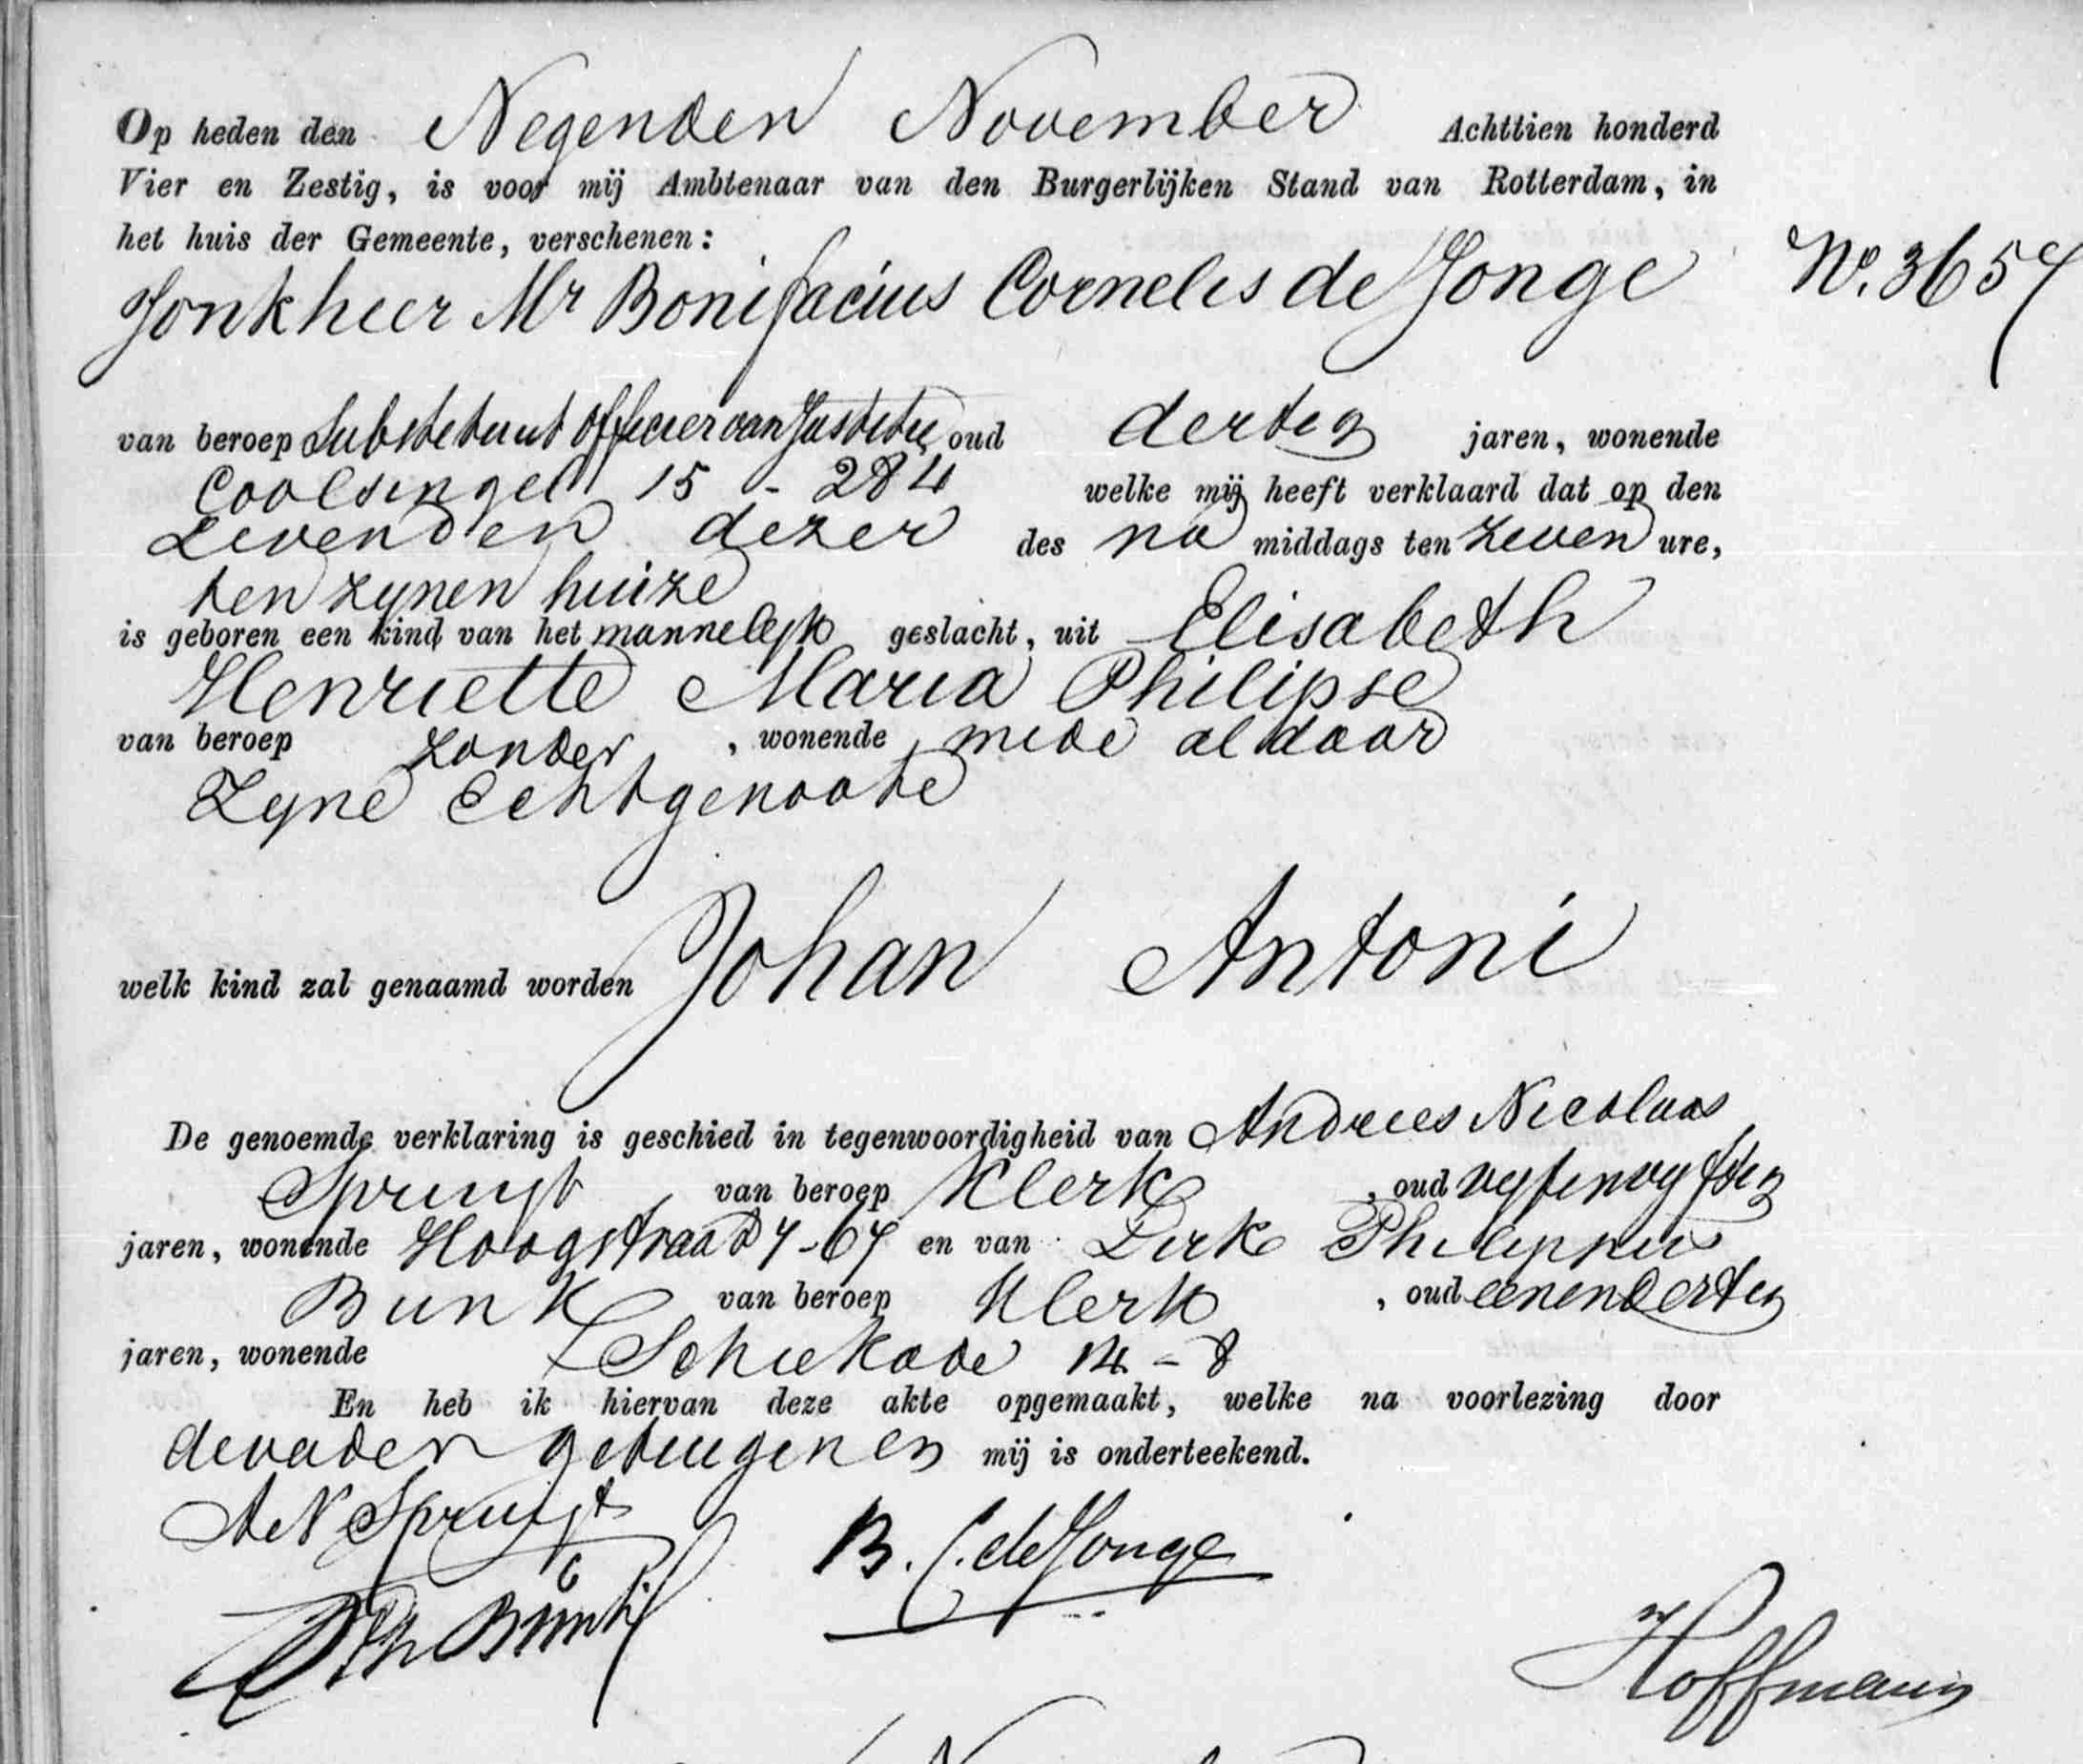 Op heden den Negenden November Achttien honderd
Vier en Zestig, is voor mij Ambtenaar van den Burgerlijken Stand van Rotterdam, in
het huis der Gemeente, verschenen:
Jonkheer Mr Bonifacius Cornelis de Jonge
No. 3657
van beroep Substituut Officier van Justitie, oud dertig jaren, wonende
Coolsingel 15 - 284 welke mij heeft verklaard dat op den
Zevenden dezer des na middags ten zeven ure,
ten zynen huize
is geboren een kind van het mannelyk geslacht, uit Elisabeth
Henriette Maria Philipse
van beroep zonder, wonende mede aldaar
Zyne Echtgenoote
welk kind zal genaamd worden Johan Antoni
De genoemde verklaring is geschied in tegenwoordigheid van Andries Nicolaas
Spruyt van beroep Klerk, oud vyfenvyftig
jaren, wonende Hoogstraat 7-67 en van Dirk Philippus
Bunk van beroep Klerk, oud eenendertig
jaren, wonende Schiekade 14 - 8
En heb ik hiervan deze akte opgemaakt, welke na voorlezing door
de vader getuigen en mij is onderteekend.
A N Spruyt
B. C. de Jonge
D Ph Bunk
Hoffmann